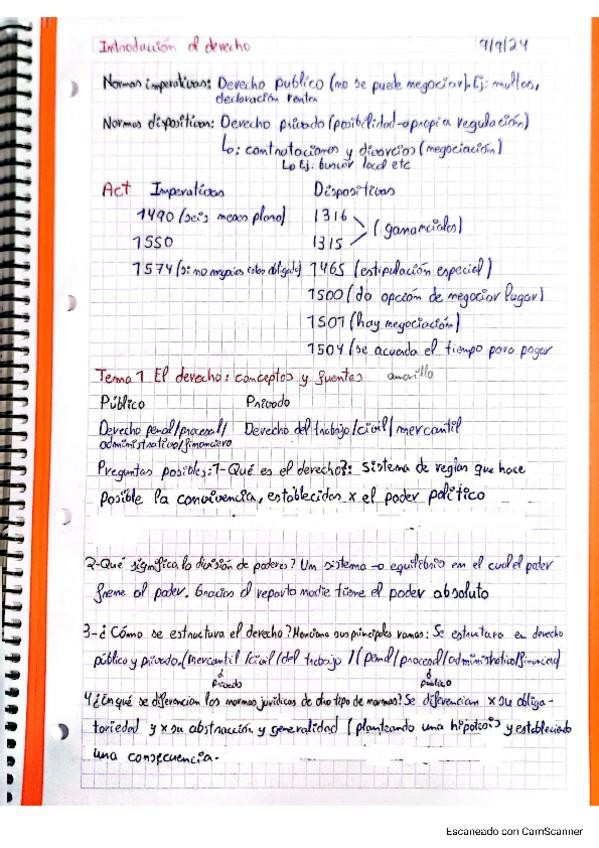 Introducción al derecho 9/9/24
Normas imperativas: Derecho publico (no se puede negociar). Ej: multas,
declaración renta
Normas dispositivas: Derecho privado (posibilidad → propia regulación)
Lo: contrataciones y divorcios (negociación)
Lo Ej: buscar local etc
Act Imperativas Dispositivas
1490 (seis meses plazo) 1316
1315 (gananciales)
1550
1574 (si no negocias estas obligado) 1465 (estipulación especial)
1500 (da opción de negociar lugar)
1501 (hay negociación)
1504 (se acuerda el tiempo para pagar
Tema 1 El derecho: conceptos y fuentes amarillo
Público Privado
Derecho penal/procesal/ Derecho del trabajo/civil/mercantil
administrativo/financiero
Preguntas posibles: 1-Qué es el derecho?: Sistema de reglas que hace
posible la convivencia, establecidas x el poder político
2-Qué significa la división de poderes? Un sistema → equilibrio en el cual el poder
frene al poder. Gracias al reparto nadie tiene el poder absoluto
3-¿Cómo se estructura el derecho? Menciona sus principales ramas: Se estructura en derecho
público y privado. (mercantil/civil/del trabajo) (penal/procesal/administrativo/financiero)
privado público
4 ¿En qué se diferencian las normas jurídicas de otro tipo de normas? Se diferencian x su obliga-
toriedad y x su abstracción y generalidad (planteando una hipótesis y estableciendo
una consecuencia.
Escaneado con CamScanner